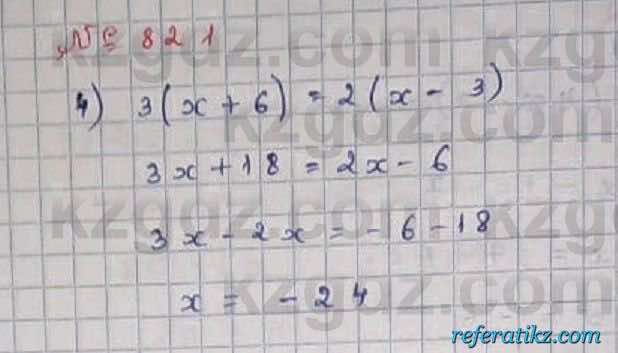 № 821
4) 3(x + 6) = 2(x - 3)
3x + 18 = 2x - 6
3x - 2x = - 6 - 18
x = - 24
kzgdz.com
kzgdz.com
kzgdz.com
kzgdz.com
referatikz.com